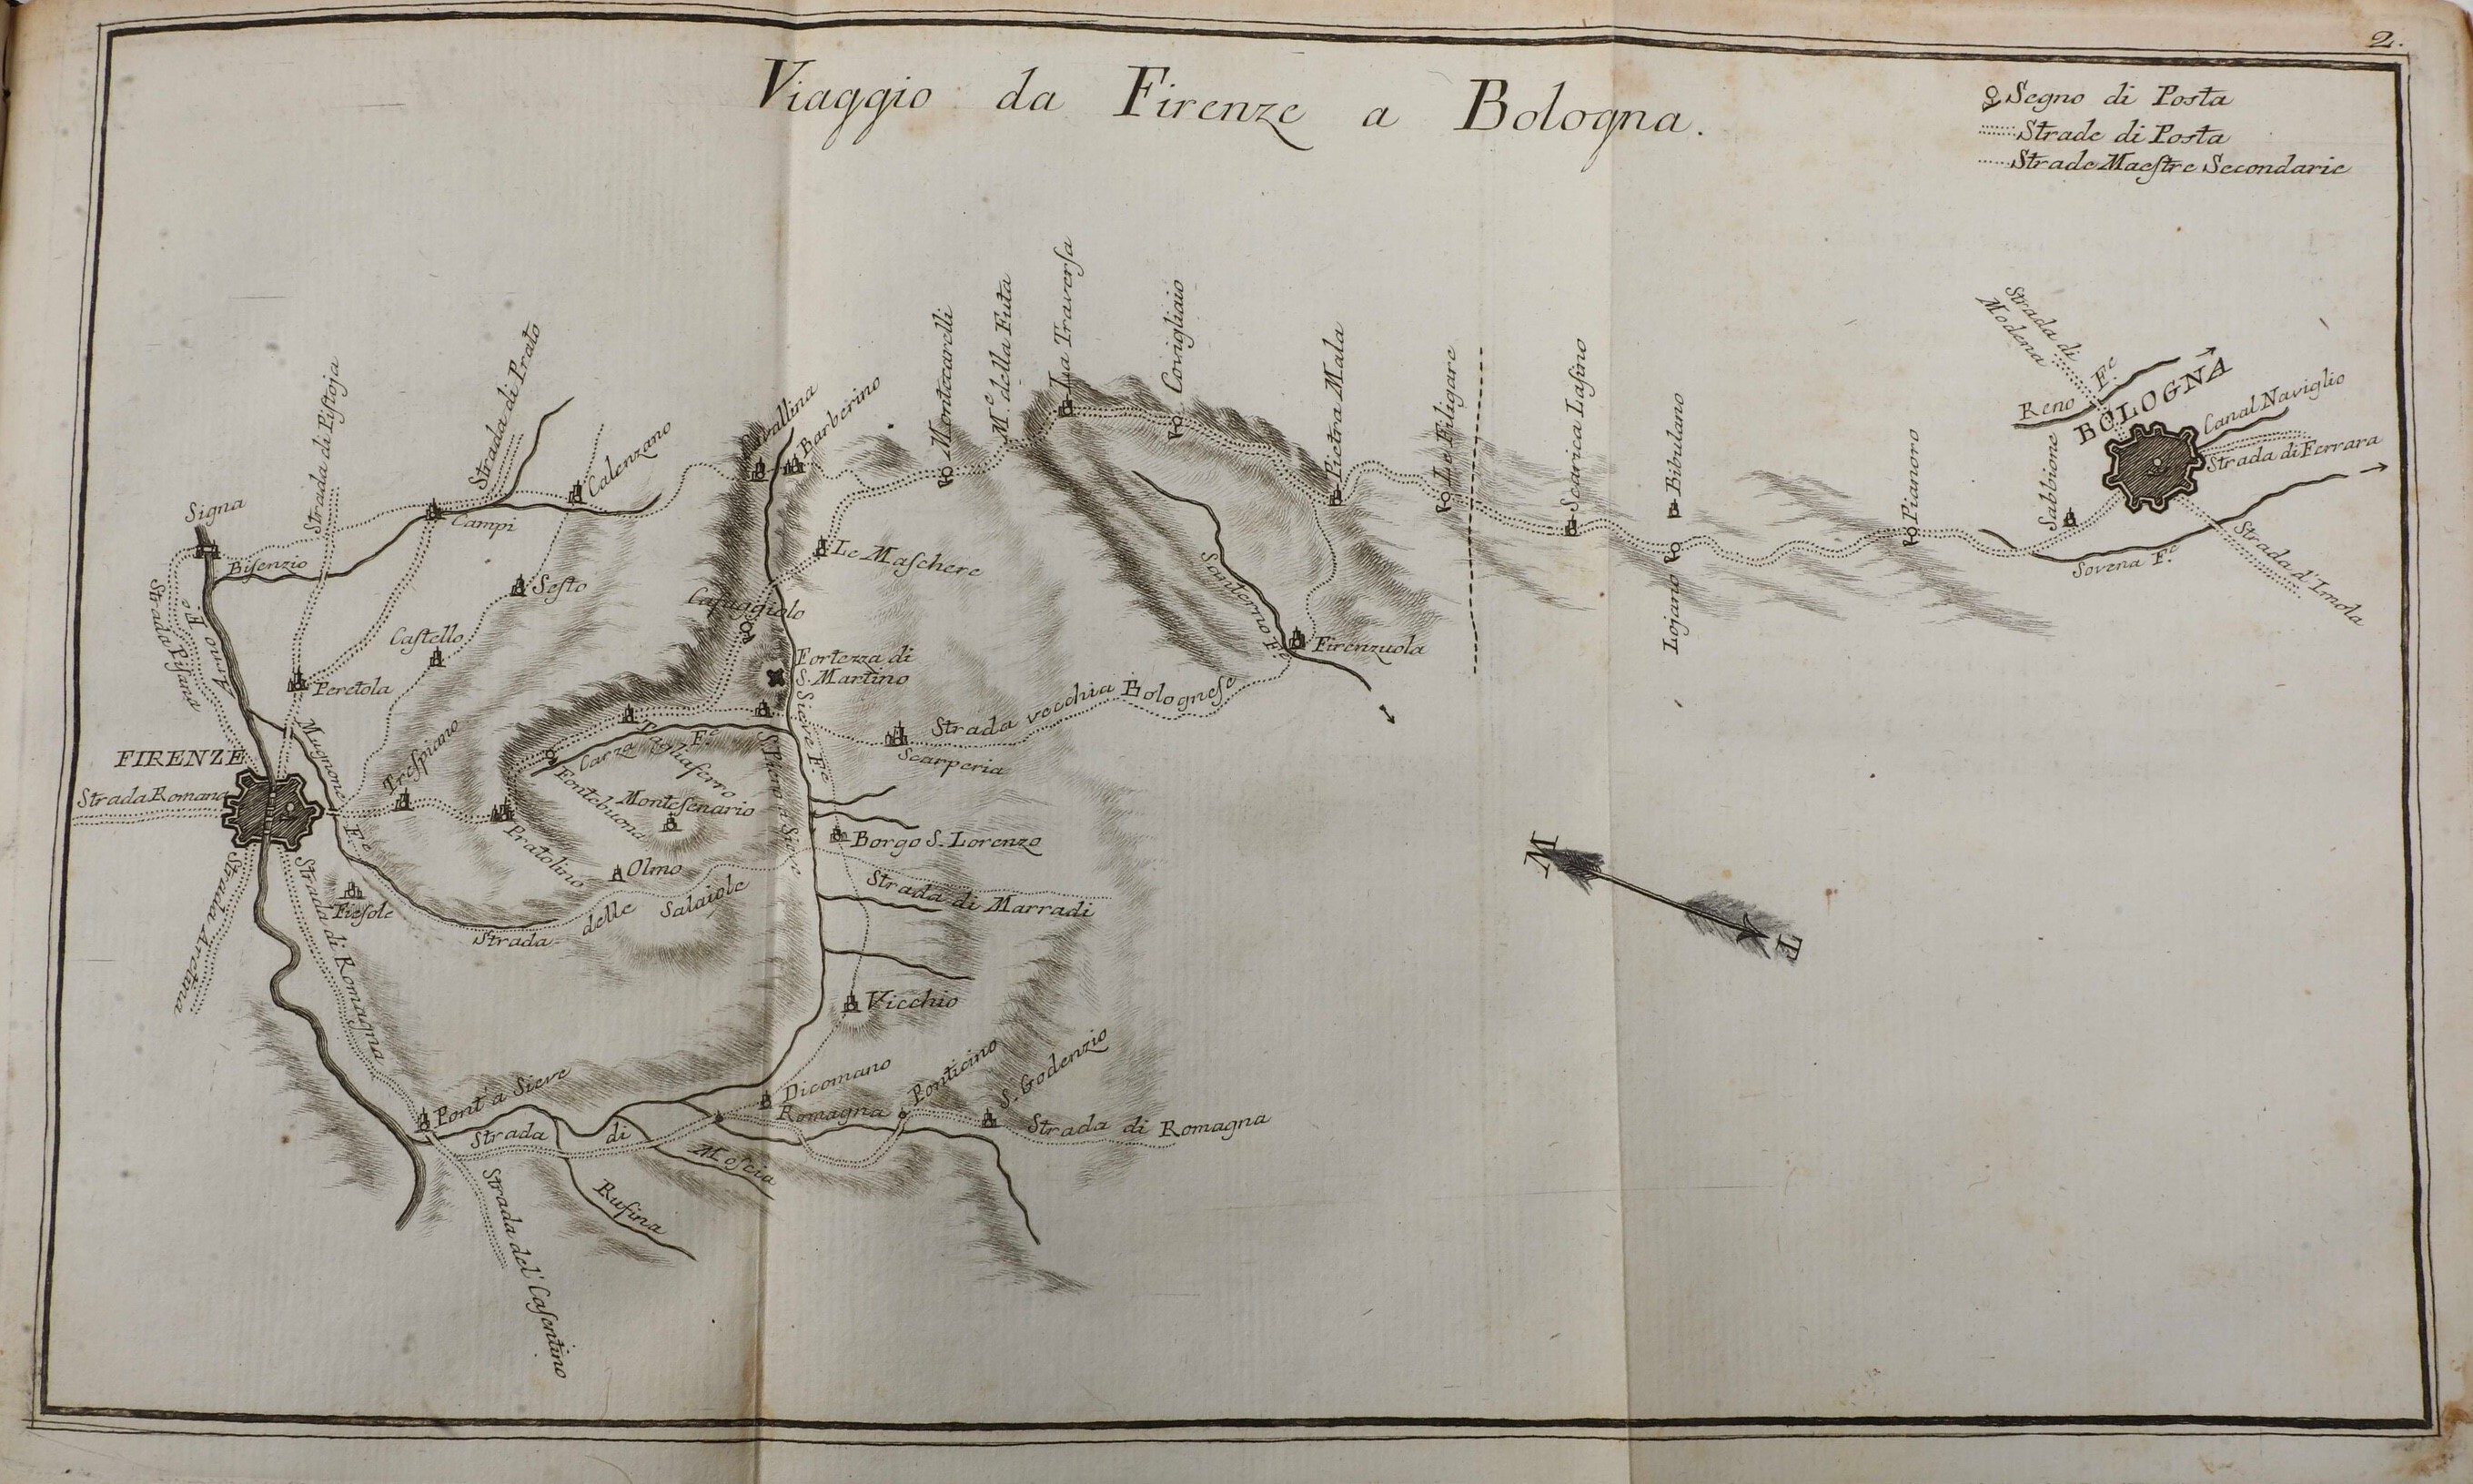 2.
Viaggio da Firenze a Bologna.
Segno di Posta
Strade di Posta
Strade Maeſtre Secondarie
Signa
Strada di Piſtoja
Strada di Prato
Calenzano
Campi
Biſenzio
Strada Piſana
Arno F.
Seſto
Caſtello
Peretola
Mugnone F.e
FIRENZE
Strada Romana
Strada Aretina
Strada di Romagna
Fieſole
Treſpiano
Pratolino
Fontebuona
Carza F.e
Tagliaferro
Monteſenario
Olmo
Strada delle Salaiole
S. Piero a Sieve
Sieve F.e
Cavallina
Barberino
Le Maſchere
Cafaggiolo
Fortezza di
S. Martino
Montecarelli
M.e della Futa
La Traverſa
Covigliaio
Pietra Mala
Le Filigare
Scarica Laſino
Bibulano
Lojano
Pianoro
Sabbione
Strada di
Modena
Reno F.e
BOLOGNA
Canal Naviglio
Strada di Ferrara
Strada d'Imola
Sovena F.e
Santerno F.e
Firenzuola
Strada vecchia Bologneſe
Scarperia
Borgo S. Lorenzo
Strada di Marradi
Vicchio
Dicomano
Ponticino
S. Godenzio
Strada di Romagna
Pont'a Sieve
Strada di Romagna
Moſcia
Rufina
Strada del Caſentino
M
T